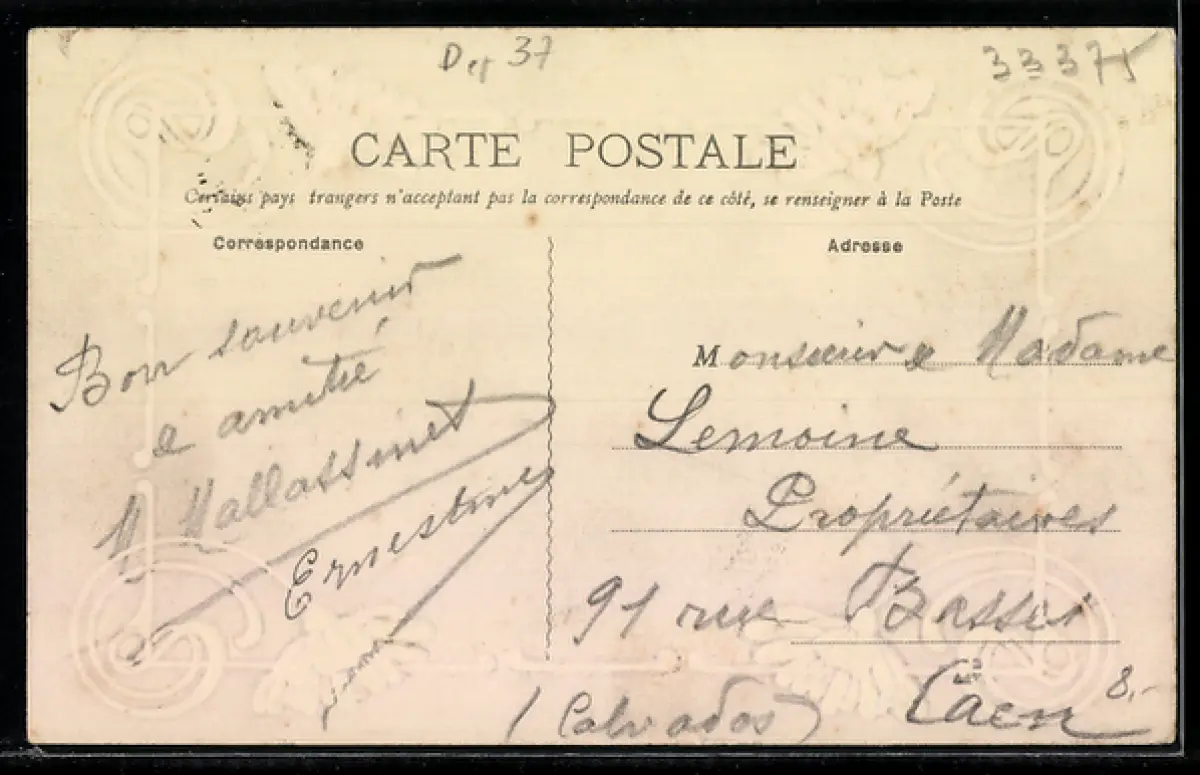 Dep 37
33375
CARTE POSTALE
Certains pays trangers n'acceptant pas la correspondance de ce côté, se renseigner à la Poste
Correspondance
Adresse
Bon souvenir
e amitié
M Mallassinet
Ernestine
Monsieur e Madame
Lemoine
Propriétaires
91 rue Basse
Caen
(Calvados)
8.-